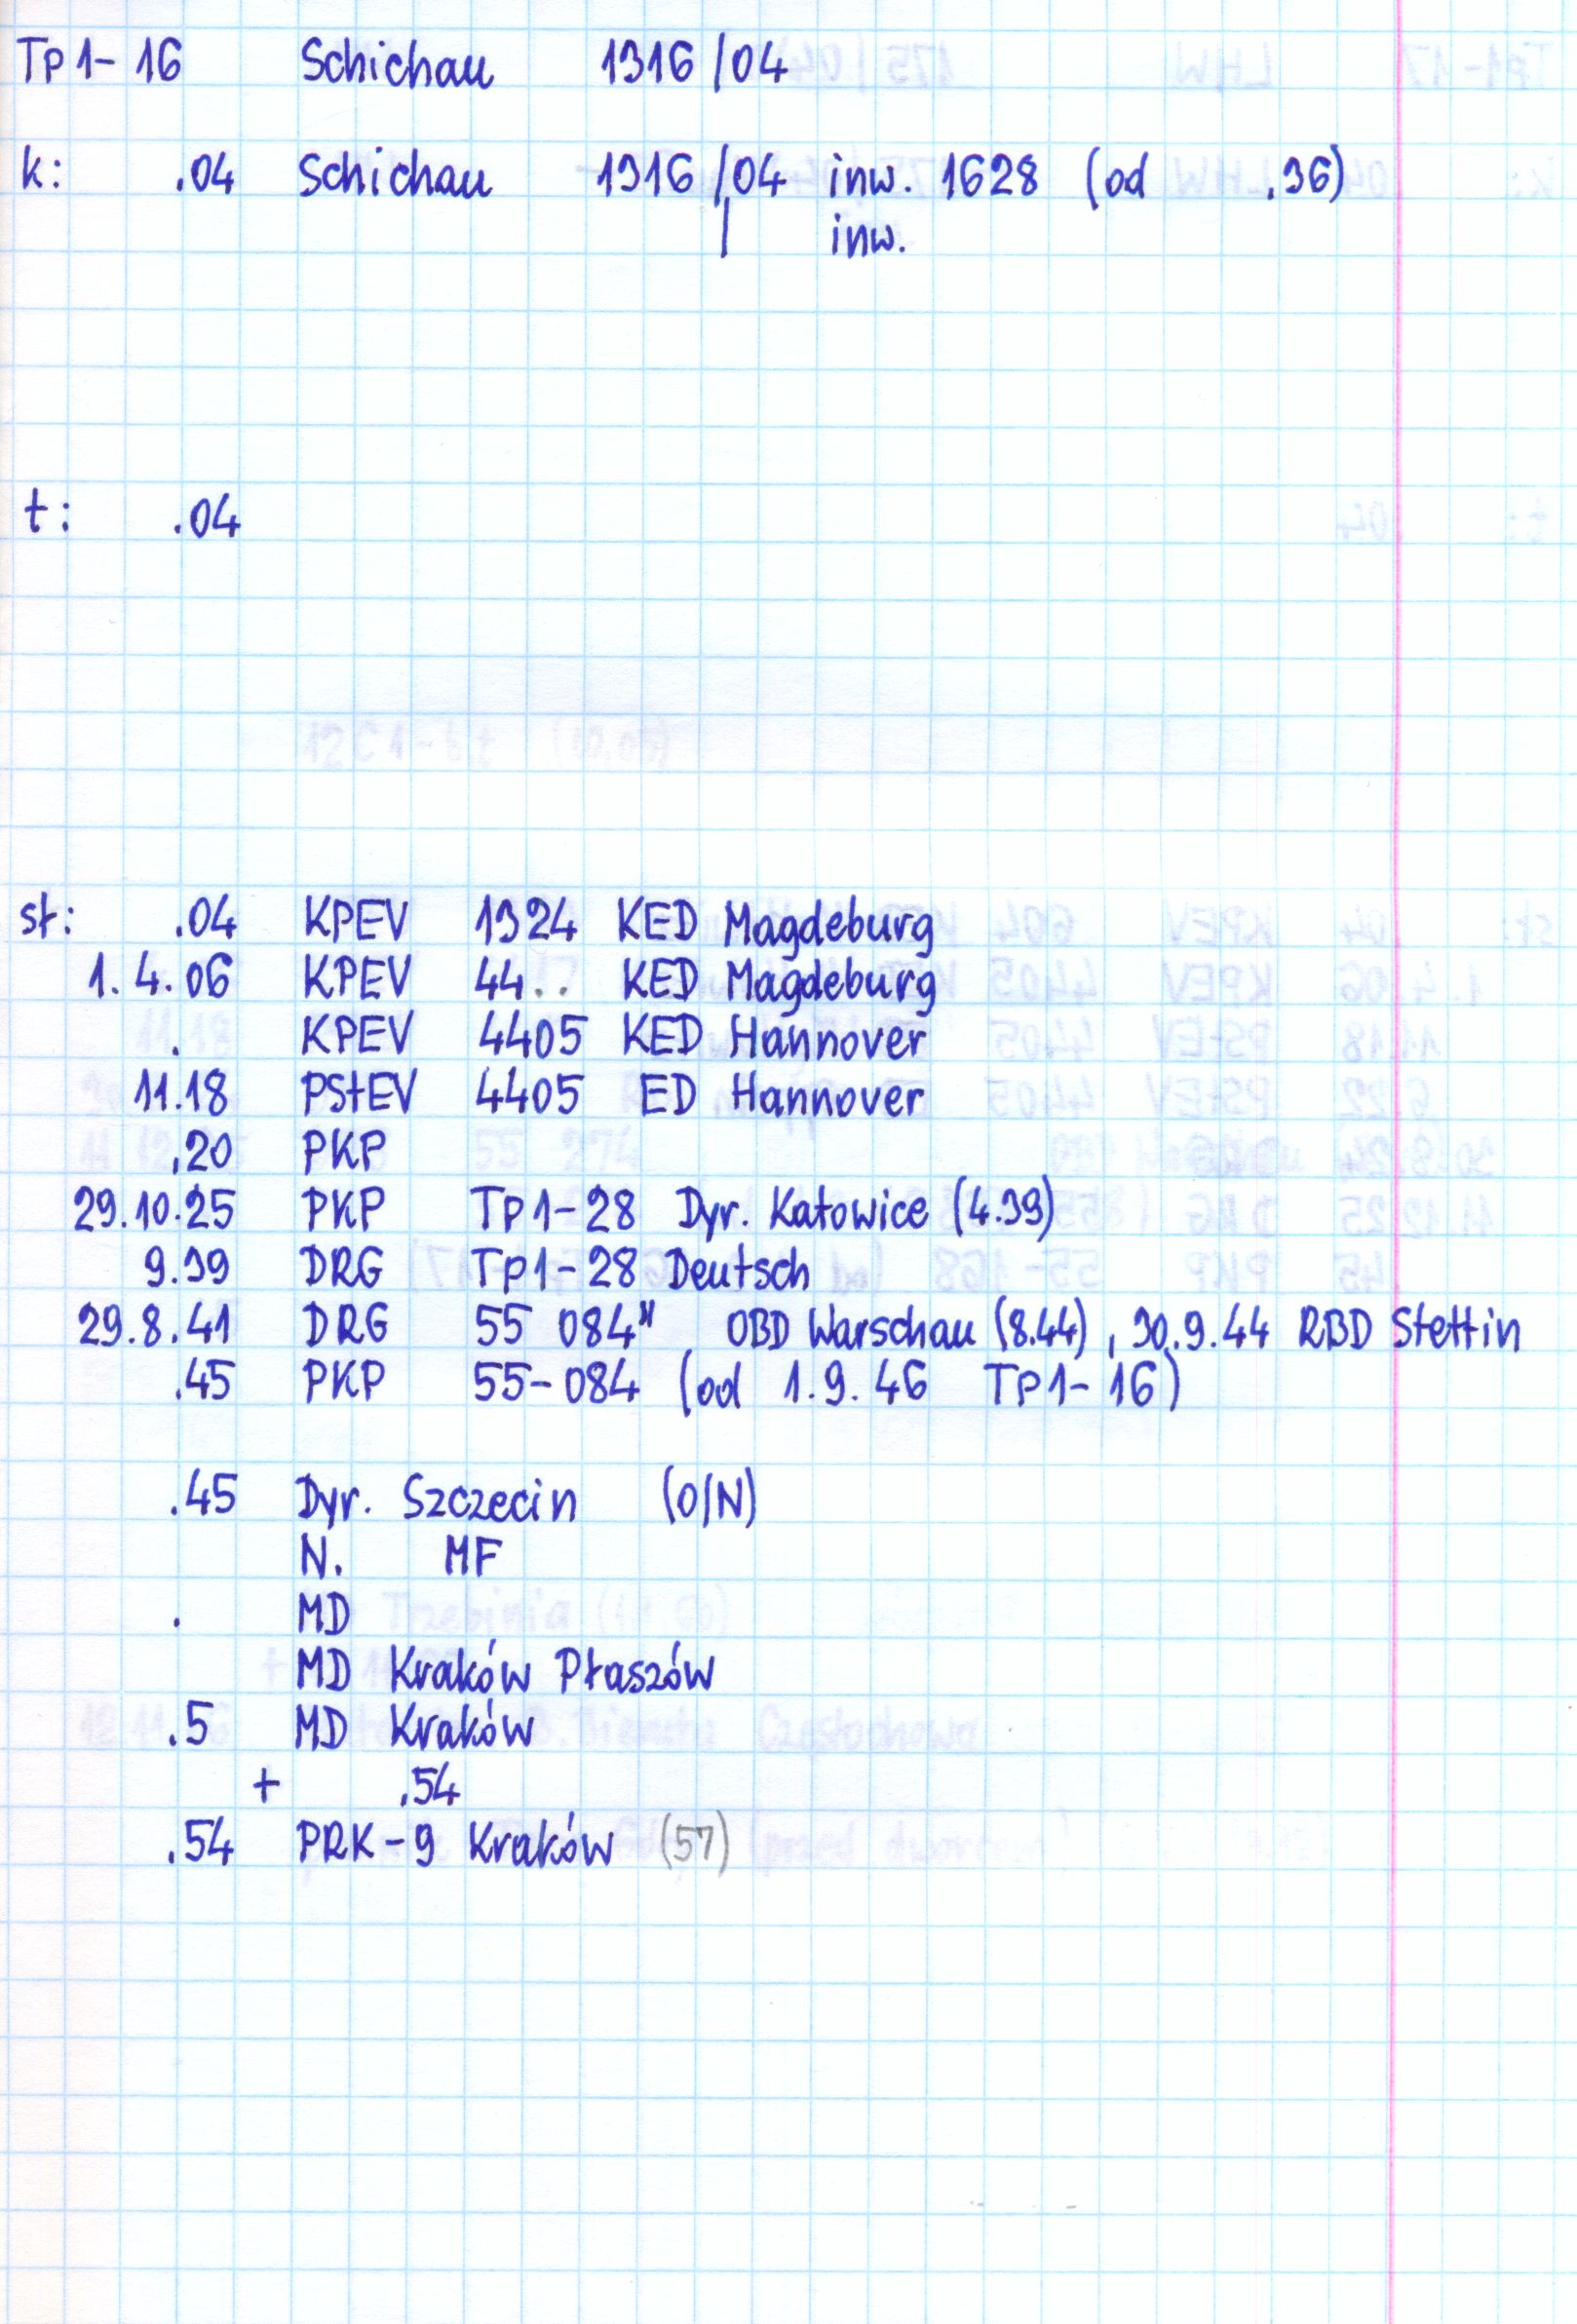 Tp1-16 Schichau 1316/04
k: .04 Schichau 1316/04 inw. 1628 (od .36)
/ inw.
t: .04
sł: .04 KPEV 1324 KED Magdeburg
1.4.06 KPEV 44.. KED Magdeburg
. KPEV 4405 KED Hannover
11.18 PStEV 4405 ED Hannover
.20 PKP
29.10.25 PKP Tp1-28 Dyr. Katowice (4.39)
9.39 DRG Tp1-28 Deutsch
29.8.41 DRG 55 084" OBD Warschau (8.44), 30.9.44 RBD Stettin
.45 PKP 55-084 (od 1.9.46 Tp1-16)
.45 Dyr. Szczecin (O/N)
N. MF
. MD
MD Kraków Płaszów
.5 MD Kraków
+ .54
.54 PRK-9 Kraków (57)